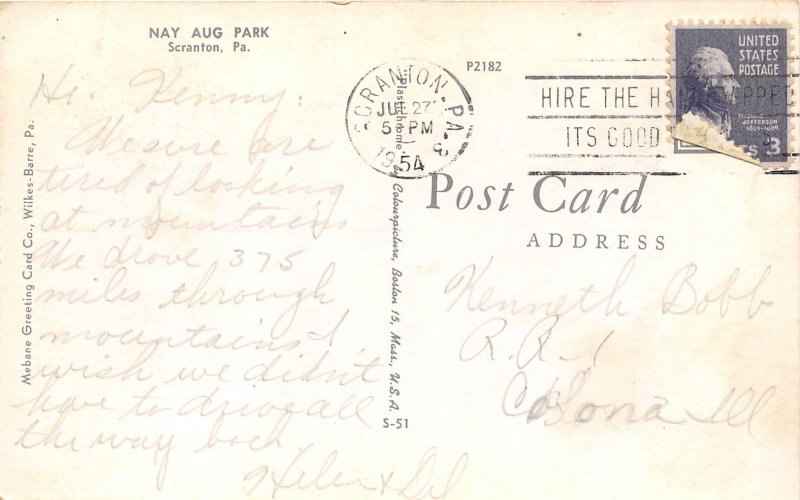 NAY AUG PARK
Scranton, Pa.
P2182
SCRANTON, PA. 3
JUL 27
5 PM
1954
HIRE THE HANDICAPPED
ITS GOOD
UNITED
STATES
POSTAGE
JEFFERSON
1801-1809
3
Hi. Kenny:
We sure are
tired of looking
at mountains
We drove 375
miles through
mountains I
wish we didn't
have to drive all
the way back
Helen & Del
Mebane Greeting Card Co., Wilkes-Barre, Pa.
Plastichrome by Colourpicture, Boston 15, Mass., U.S.A.
S-51
Post Card
ADDRESS
Kenneth Bobb
R.R. 1
Colona Ill